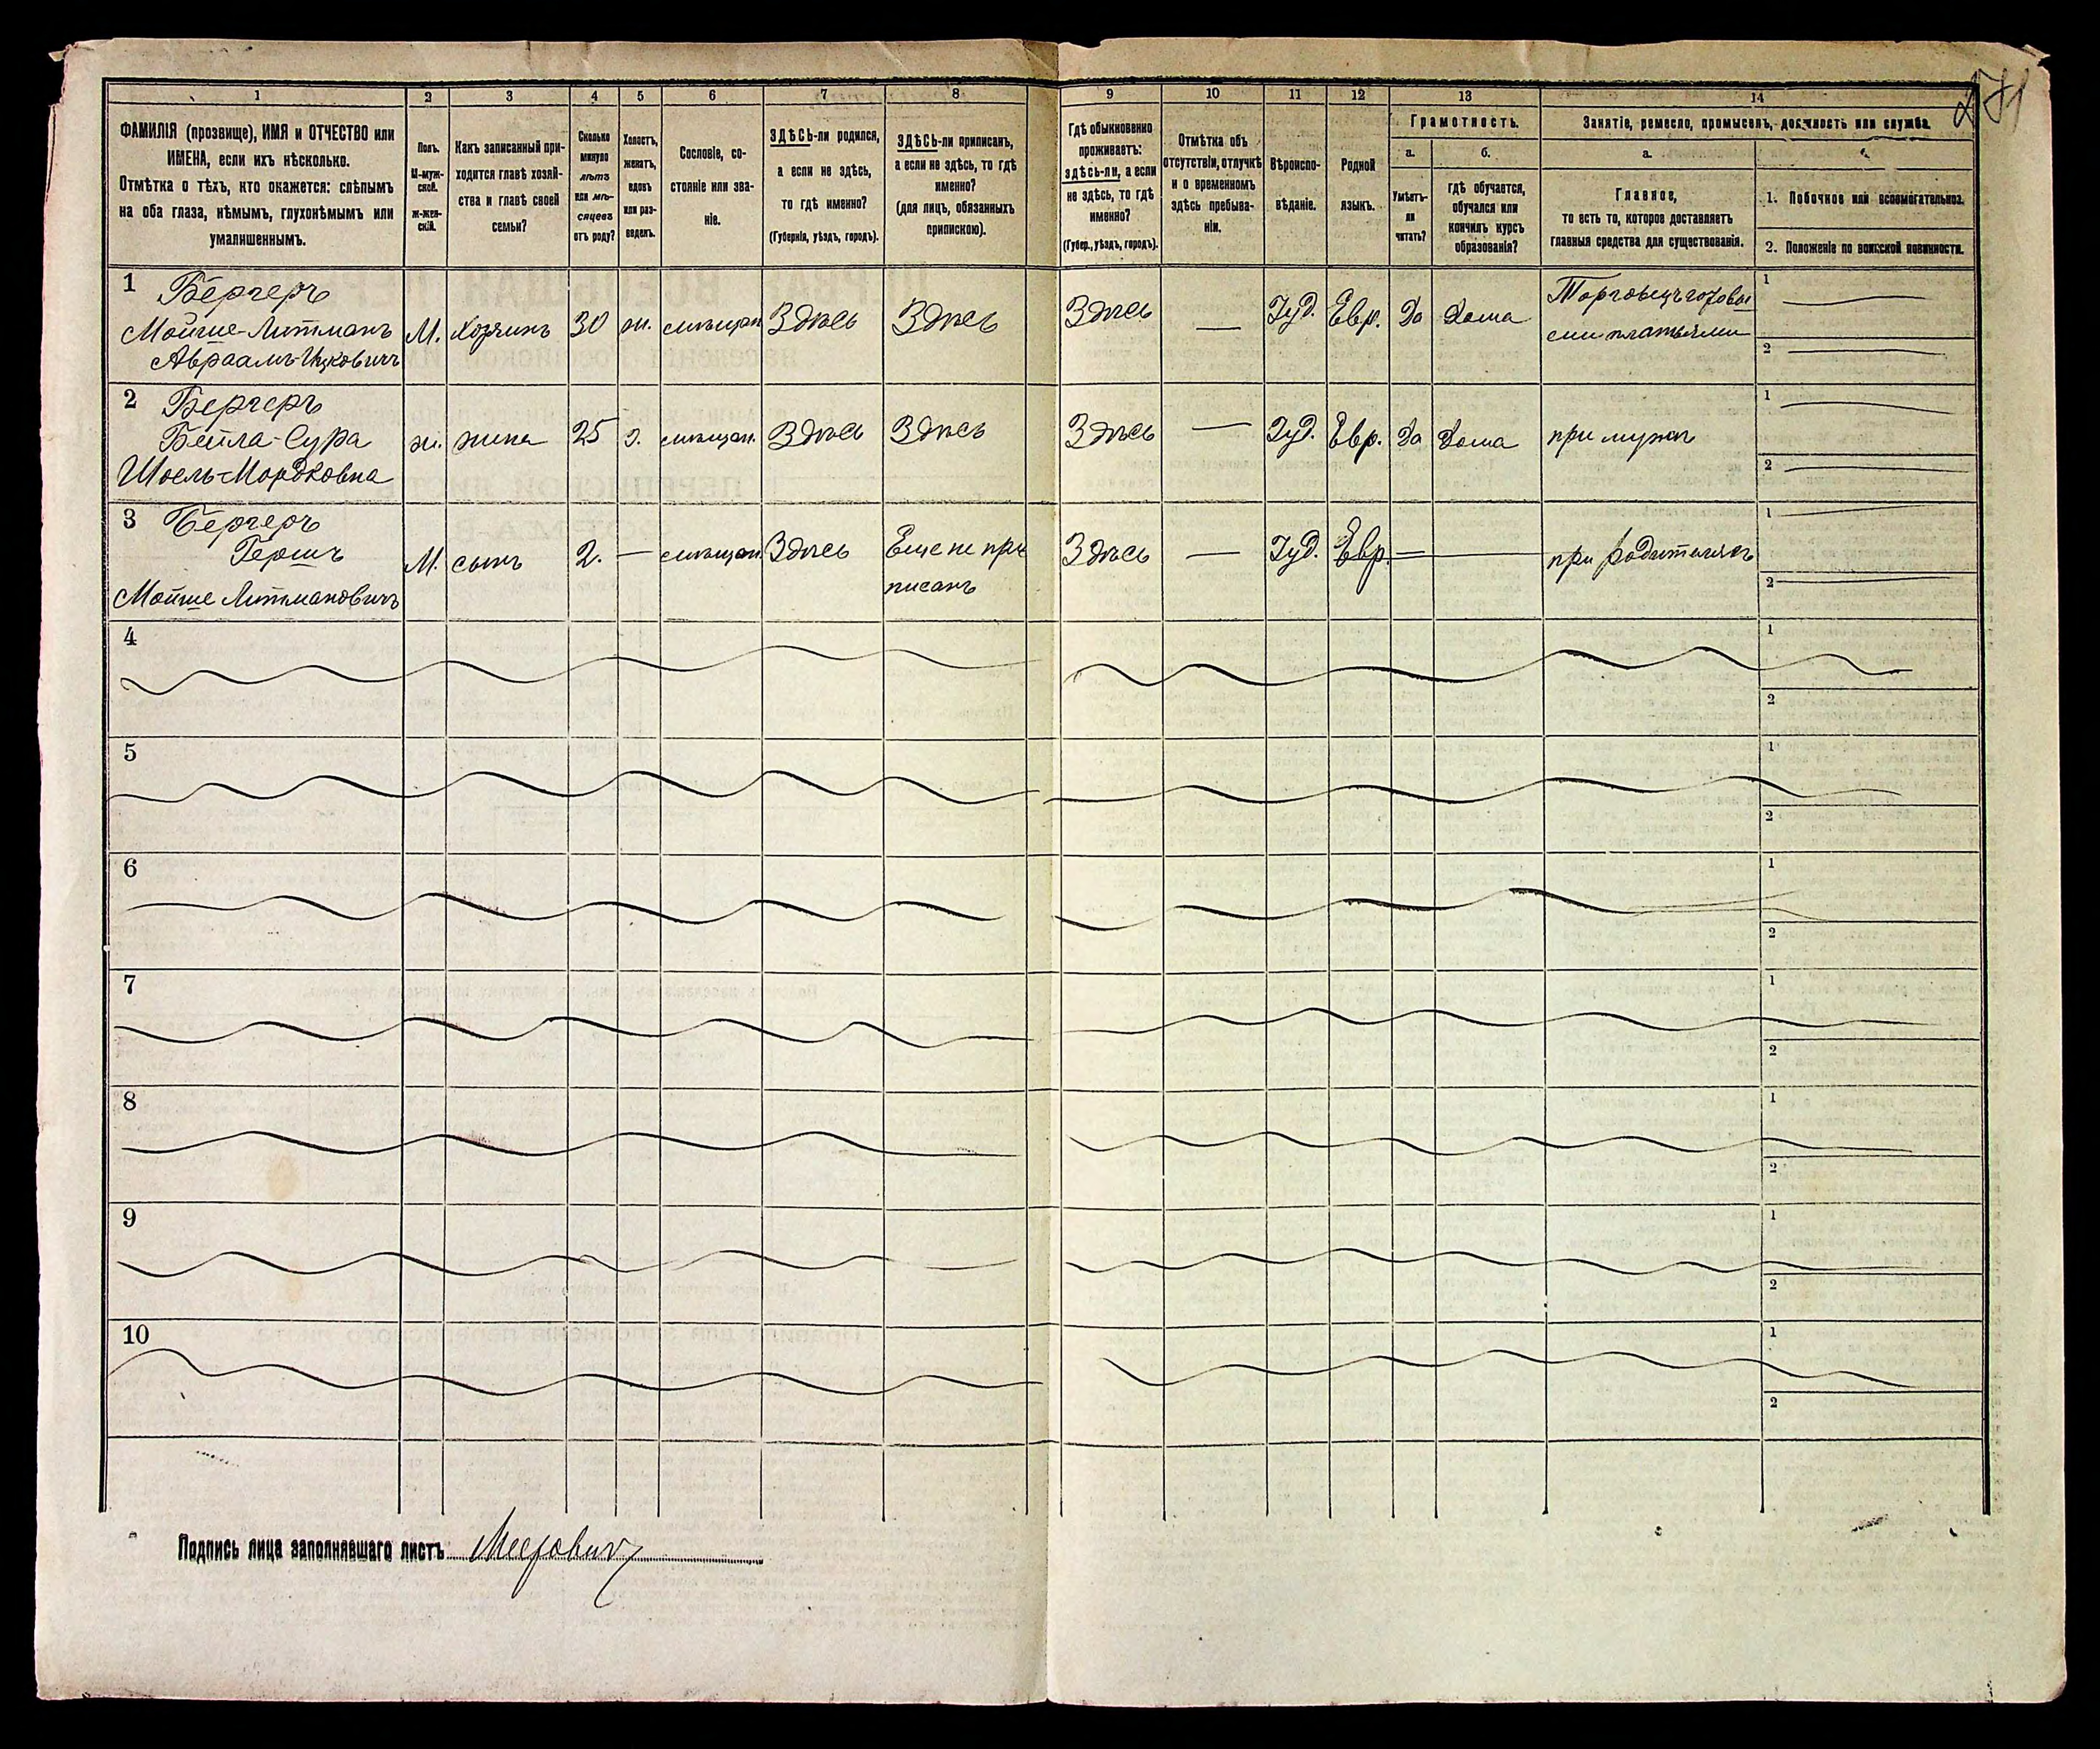 271
1
2
3
4
5
6
7
8
9
10
11
12
13
14
ФАМИЛІЯ (прозвище), ИМЯ и ОТЧЕСТВО или
ИМЕНА, если ихъ нѣсколько.
Отмѣтка о тѣхъ, кто окажется: слѣпымъ
на оба глаза, нѣмымъ, глухонѣмымъ или
умалишеннымъ.
Полъ.
М-муж-
ской.
Ж-жен-
скій.
Какъ записанный при-
ходится главѣ хозяй-
ства и главѣ своей
семьи?
Сколько
минуло
лѣтъ
или мѣ-
сяцевъ
отъ роду?
Холостъ,
женатъ,
вдовъ
или раз-
веденъ.
Сословіе, со-
стояніе или зва-
ніе.
ЗДѢСЬ-ли родился,
а если не здѣсь,
то гдѣ именно?
(Губернія, уѣздъ, городъ).
ЗДѢСЬ-ли приписанъ,
а если не здѣсь, то гдѣ
именно?
(для лицъ, обязанныхъ
припискою).
Гдѣ обыкновенно
проживаетъ:
здѣсь-ли, а если
не здѣсь, то гдѣ
именно?
(Губер., уѣздъ, городъ).
Отмѣтка объ
отсутствіи, отлучкѣ
и о временномъ
здѣсь пребыва-
ніи.
Вѣроиспо-
вѣданіе.
Родной
языкъ.
Грамотность.
а.
Умѣетъ-
ли
читать?
б.
гдѣ обучается,
обучался или
кончилъ курсъ
образованія?
Занятіе, ремесло, промыселъ, должность или служба.
а.
Главное,
то есть то, которое доставляетъ
главныя средства для существованія.
1. Побочное или вспомогательное.
2. Положеніе по воинской повинности.
1 Бергеръ
Мойше-Литманъ
Авраамъ-Ицковичъ
М. Хозяинъ 30 ж. мѣщан. Здѣсь Здѣсь Здѣсь — Іуд. Евр. Да Дома Торговецъ готовы
ми платьями
1
2
2 Бергеръ
Бейла-Сура
Шоель-Мордковна
ж. жена 25 з. мѣщан. Здѣсь Здѣсь Здѣсь — Іуд. Евр. Да Дома при мужѣ
1
2
3 Бергеръ
Гершъ
Мойше Литмановичъ
М. сынъ 2. — мѣщан. Здѣсь Еще не при
писанъ
Здѣсь — Іуд. Евр. — при родителяхъ
1
2
4
1
2
5
1
2
6
1
2
7
1
2
8
1
2
9
1
2
10
1
2
Подпись лица заполнявшаго листъ